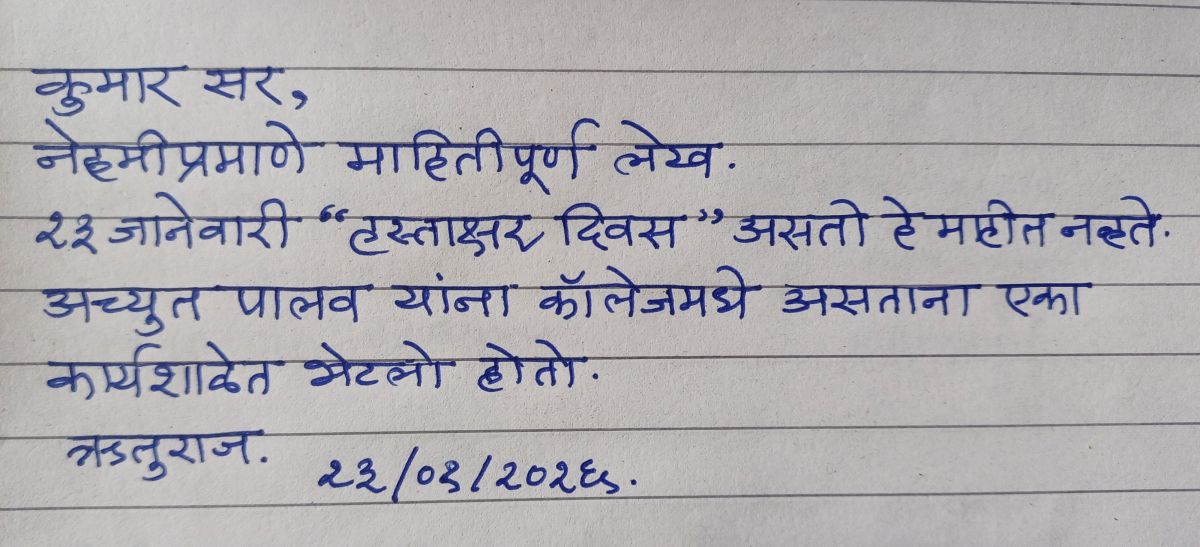 कुमार सर,
नेहमीप्रमाणे माहितीपूर्ण लेख.
२३ जानेवारी “हस्ताक्षर दिवस” असतो हे माहीत नव्हते.
अच्युत पालव यांना कॉलेजमध्ये असताना एका
कार्यशाळेत भेटलो होतो.
ऋतुराज.
२३/०१/२०२६.